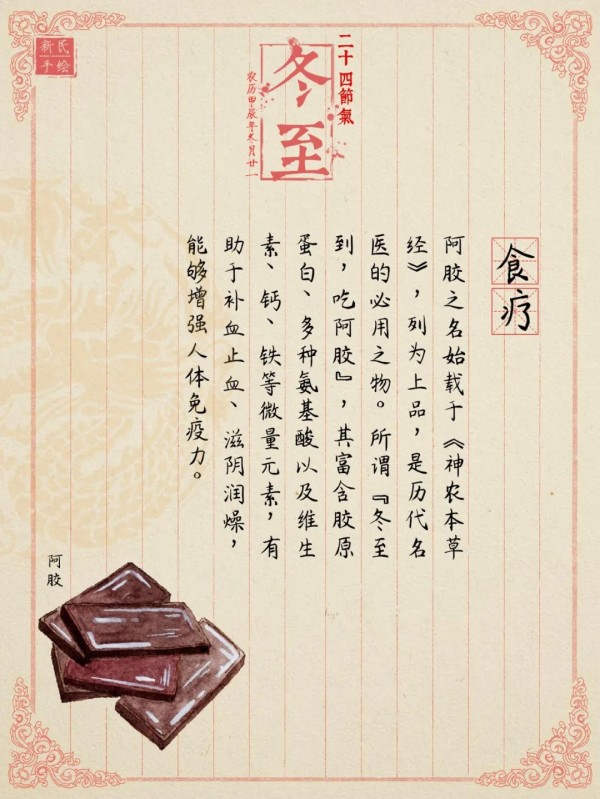 新民
手绘
二十四節氣
冬至
农历甲辰年冬月廿一
食疗
阿胶之名始载于《神农本草
经》，列为上品，是历代名
医的必用之物。所谓『冬至
到，吃阿胶』，其富含胶原
蛋白、多种氨基酸以及维生
素、钙、铁等微量元素，有
助于补血止血、滋阴润燥，
能够增强人体免疫力。
阿胶